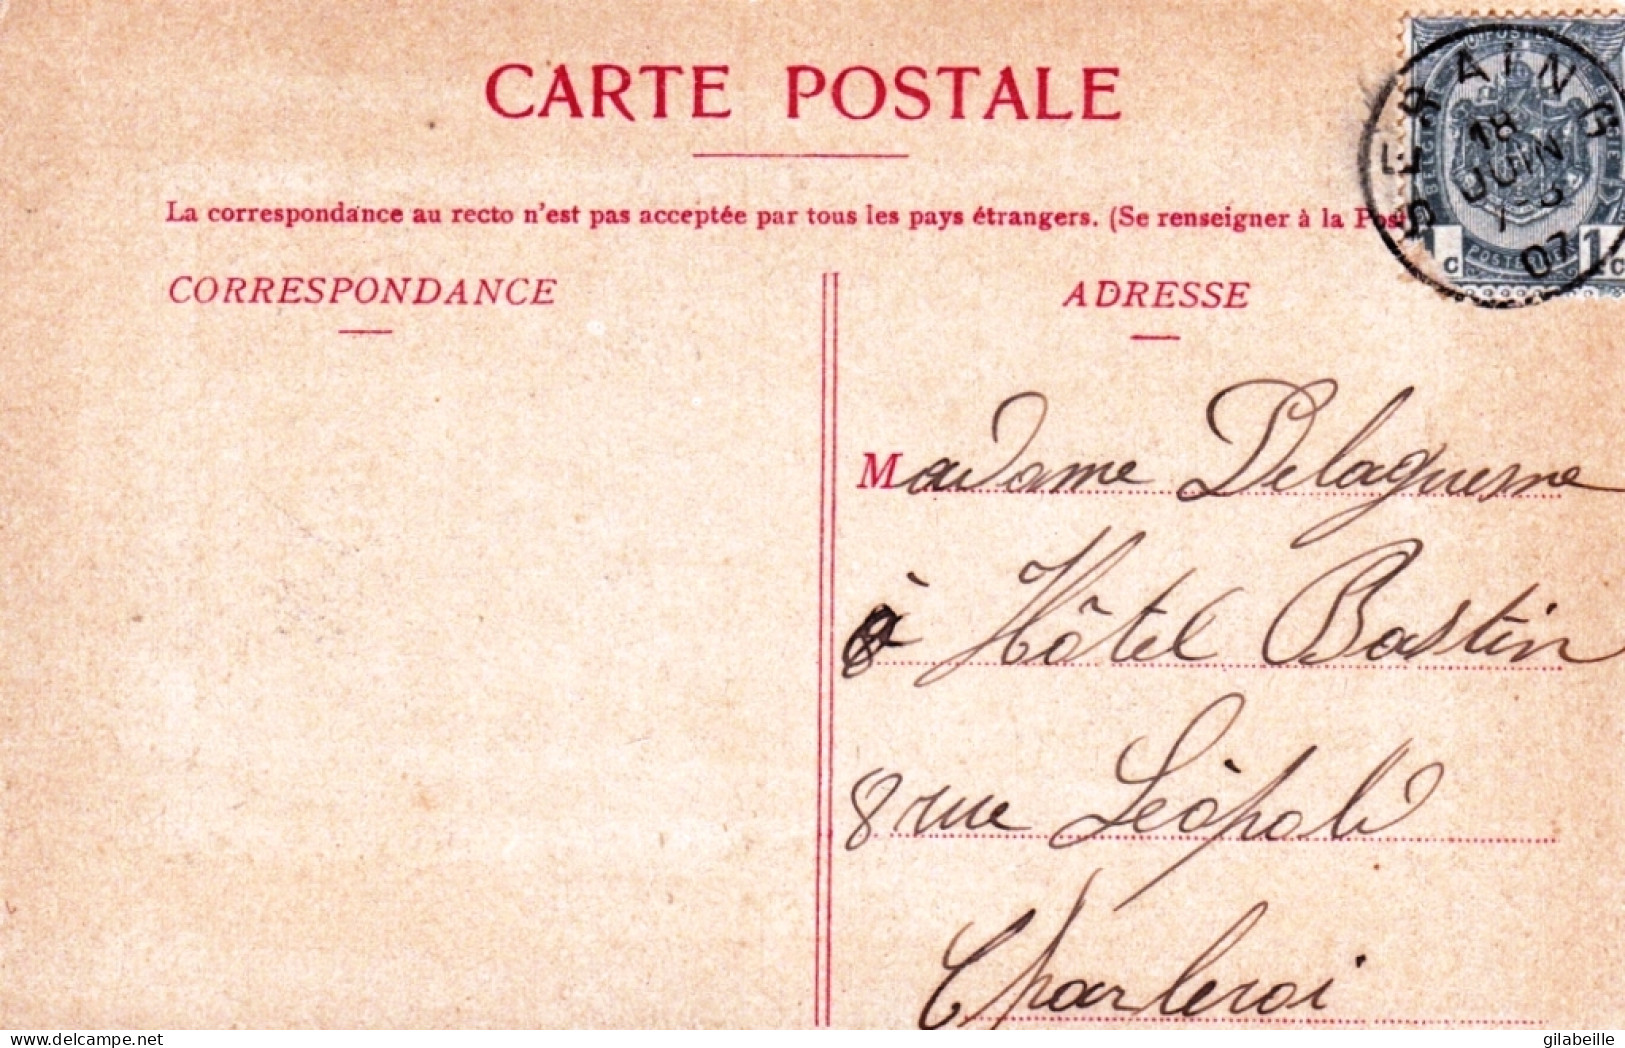 CARTE POSTALE
SERAING
18
JUIN
7-8
07
BELGIË
1 c
POSTERIJEN
1 c
La correspondance au recto n'est pas acceptée par tous les pays étrangers. (Se renseigner à la Post
CORRESPONDANCE
ADRESSE
Madame Delaguesne
à Hôtel Bastin
8 rue Léopold
Charleroi
delcampe.net
gilabeille